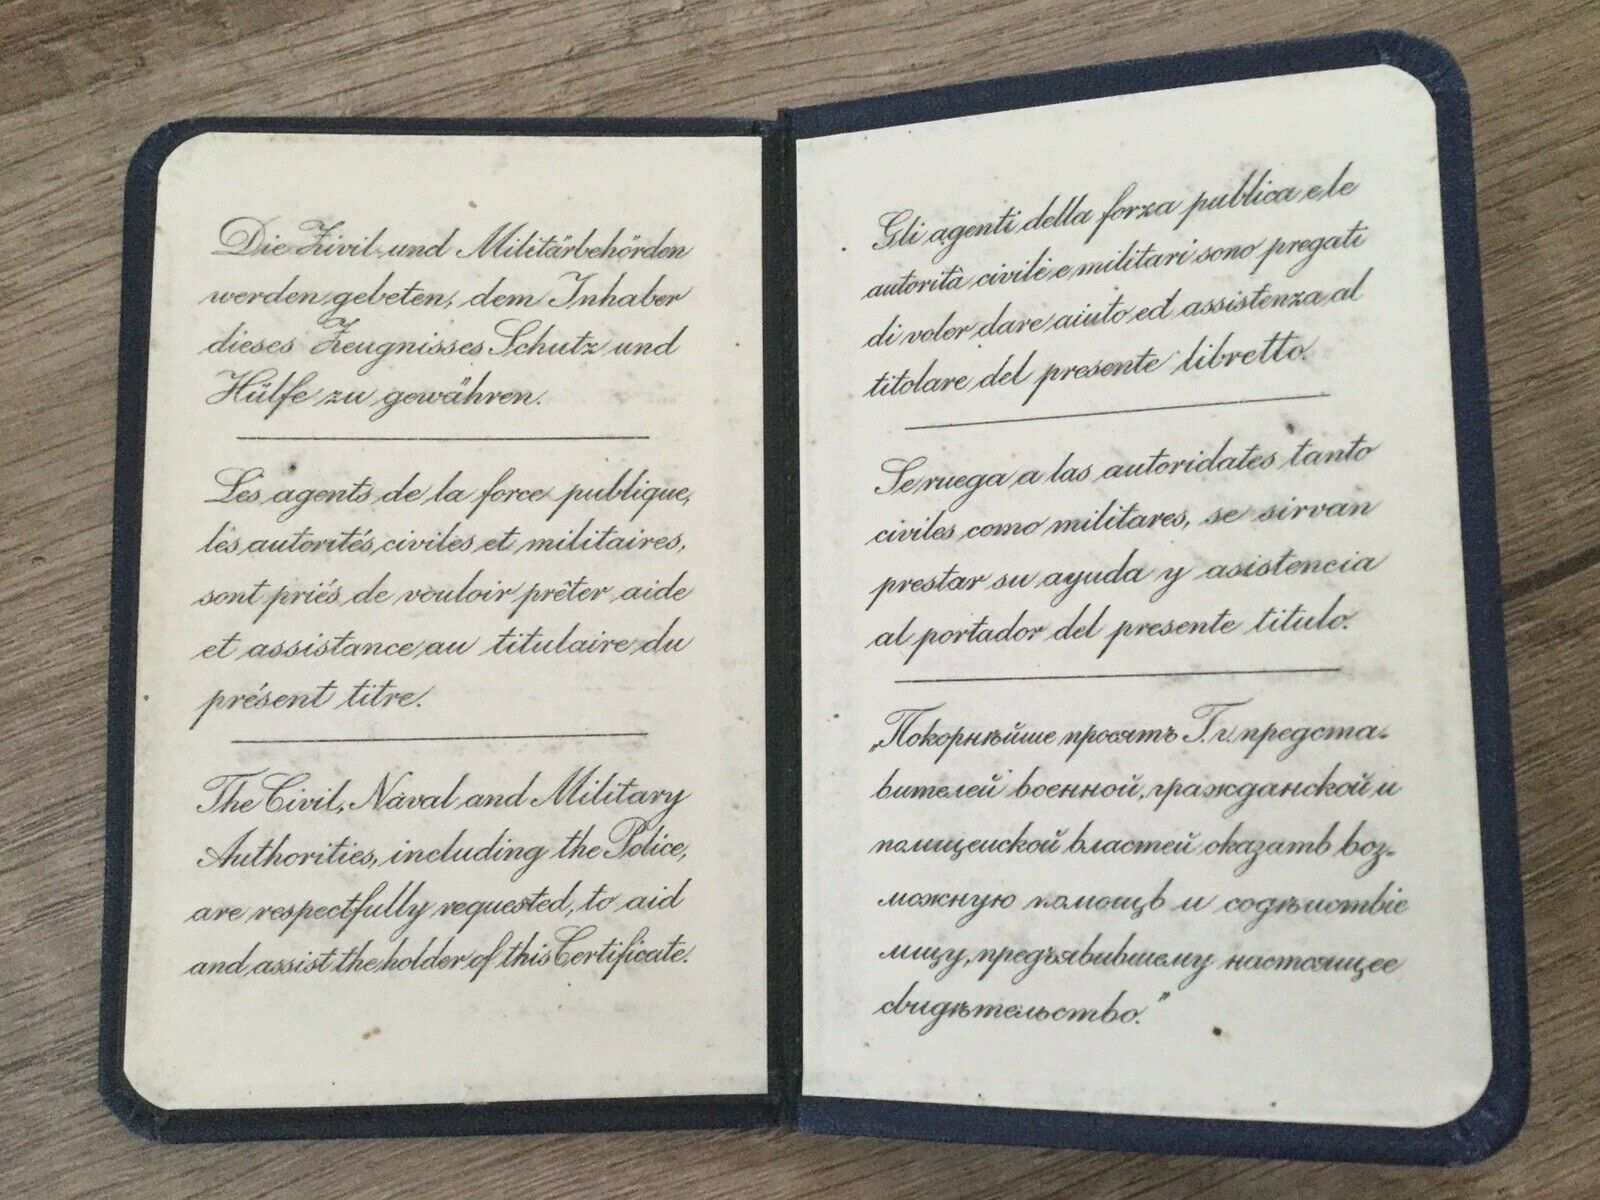 Die Zivil- und Militärbehörden
werden gebeten, dem Inhaber
dieses Zeugnisses Schutz und
Hülfe zu gewähren.
Les agents de la force publique,
les autorités civiles et militaires,
sont priés de vouloir prêter aide
et assistance au titulaire du
présent titre.
The Civil, Naval and Military
Authorities, including the Police,
are respectfully requested, to aid
and assist the holder of this Certificate.
Gli agenti della forza publica e le
autorità civili e militari sono pregati
di voler dare aiuto ed assistenza al
titolare del presente libretto.
Se ruega a las autoridates tanto
civiles como militares, se sirvan
prestar su ayuda y asistencia
al portador del presente titulo.
„Покорнѣйше просятъ Г.г. предста-
вителей военной, гражданской и
полицейской властей оказать воз-
можную помощь и содѣйствіе
лицу, предъявившему настоящее
свидѣтельство.”